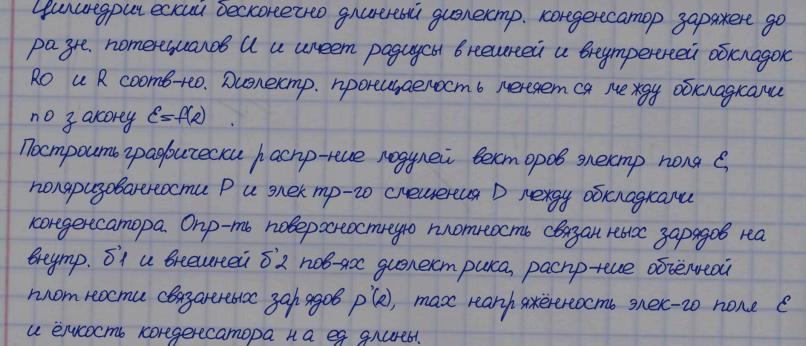 Цилиндрический бесконечно длинный диэлектр. конденсатор заряжен до
разн. потенциалов U и имеет радиусы внешней и внутренней обкладок
R0 и R соотв-но. Диэлектр. проницаемость меняется между обкладками
по закону ε=f(г) .
Построить графически распр-ние модулей векторов электр поля ε,
поляризованности P и электр-го смещения D между обкладками
конденсатора. Опр-ть поверхностную плотность связанных зарядов на
внутр. б'1 и внешней б'2 пов-ях диэлектрика, распр-ние объёмной
плотности связанных зарядов p'(г), max напряжённость элек-го поля ε
и ёмкость конденсатора на ед длины.